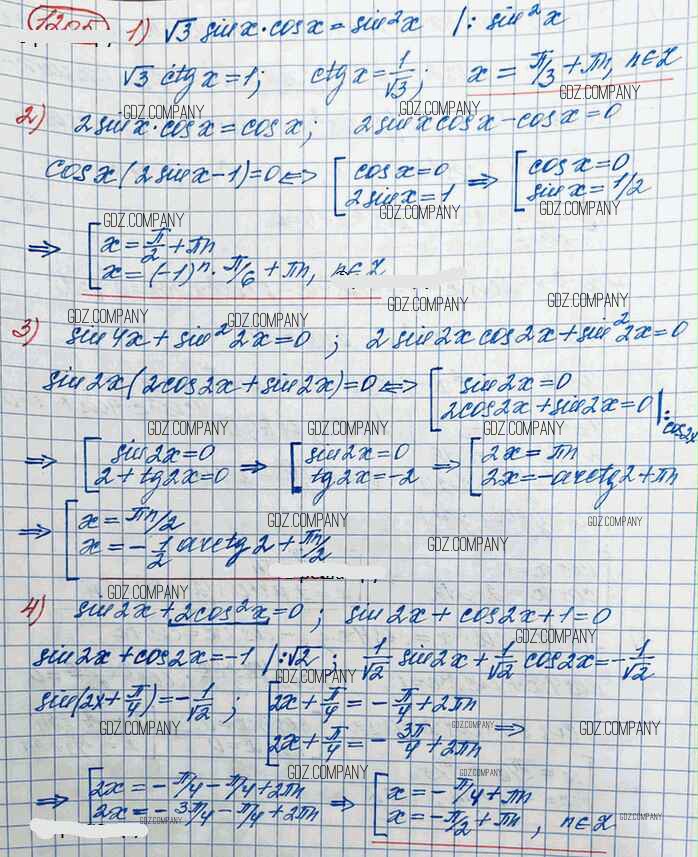 1205 1) √3 sinx·cosx = sin²x |: sin²x
√3 ctgx = 1; ctgx = 1/√3; x = π/3 + πn, n∈Z
GDZ.COMPANY GDZ.COMPANY GDZ.COMPANY
2) 2sinx·cosx = cosx; 2sinxcosx − cosx = 0
cosx(2sinx−1)=0 <=> [ cosx=0 2sinx=1 => [ cosx=0 sinx=1/2
GDZ.COMPANY GDZ.COMPANY GDZ.COMPANY
=> [ x = π/2 + πn
x = (−1)ⁿ · π/6 + πn, n∈Z
GDZ.COMPANY GDZ.COMPANY
GDZ.COMPANY GDZ.COMPANY
3) sin4x + sin²2x = 0; 2sin2xcos2x + sin²2x = 0
sin2x(2cos2x + sin2x) = 0 <=> [ sin2x=0 2cos2x + sin2x = 0 |: cos2x
GDZ.COMPANY GDZ.COMPANY GDZ.COMPANY
=> [ sin2x=0 2+tg2x=0 => [ sin2x=0 tg2x=−2 => [ 2x=πn 2x=−arctg2+πn
GDZ.COMPANY GDZ.COMPANY
=> [ x = πn/2
x = −1/2 arctg2 + πn/2
GDZ.COMPANY
GDZ.COMPANY
4) sin2x + 2cos²x = 0; sin2x + cos2x + 1 = 0
GDZ.COMPANY
sin2x + cos2x = −1 |:√2; 1/√2 sin2x + 1/√2 cos2x = −1/√2
GDZ.COMPANY
sin(2x + π/4) = −1/√2; [ 2x + π/4 = −π/4 + 2πn
2x + π/4 = −3π/4 + 2πn =>
GDZ.COMPANY GDZ.COMPANY GDZ.COMPANY
GDZ.COMPANY GDZ.COMPANY
=> [ 2x = −π/4 − π/4 + 2πn => [ x = −π/4 + πn
2x = −3π/4 − π/4 + 2πn x = −π/2 + πn, n∈Z
GDZ.COMPANY GDZ.COMPANY